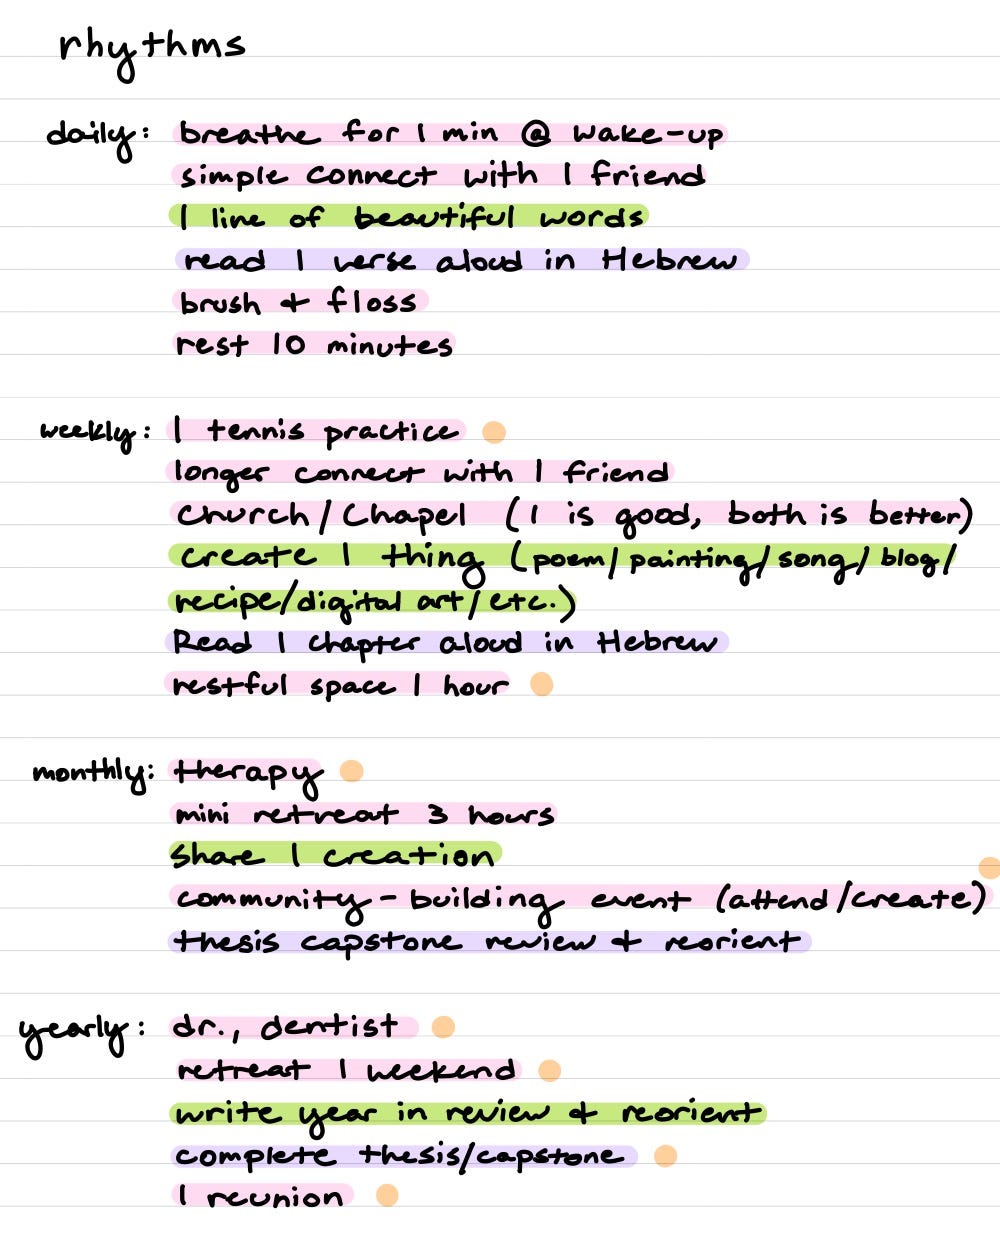 rhythms
daily: breathe for 1 min @ wake-up
simple connect with 1 friend
1 line of beautiful words
read 1 verse aloud in Hebrew
brush + floss
rest 10 minutes
weekly: 1 tennis practice
longer connect with 1 friend
Church/Chapel (1 is good, both is better)
create 1 thing (poem/painting/song/blog/
recipe/digital art/etc.)
Read 1 chapter aloud in Hebrew
restful space 1 hour
monthly: therapy
mini retreat 3 hours
share 1 creation
community-building event (attend/create)
thesis capstone review + reorient
yearly: dr., dentist
retreat 1 weekend
write year in review + reorient
complete thesis/capstone
1 reunion